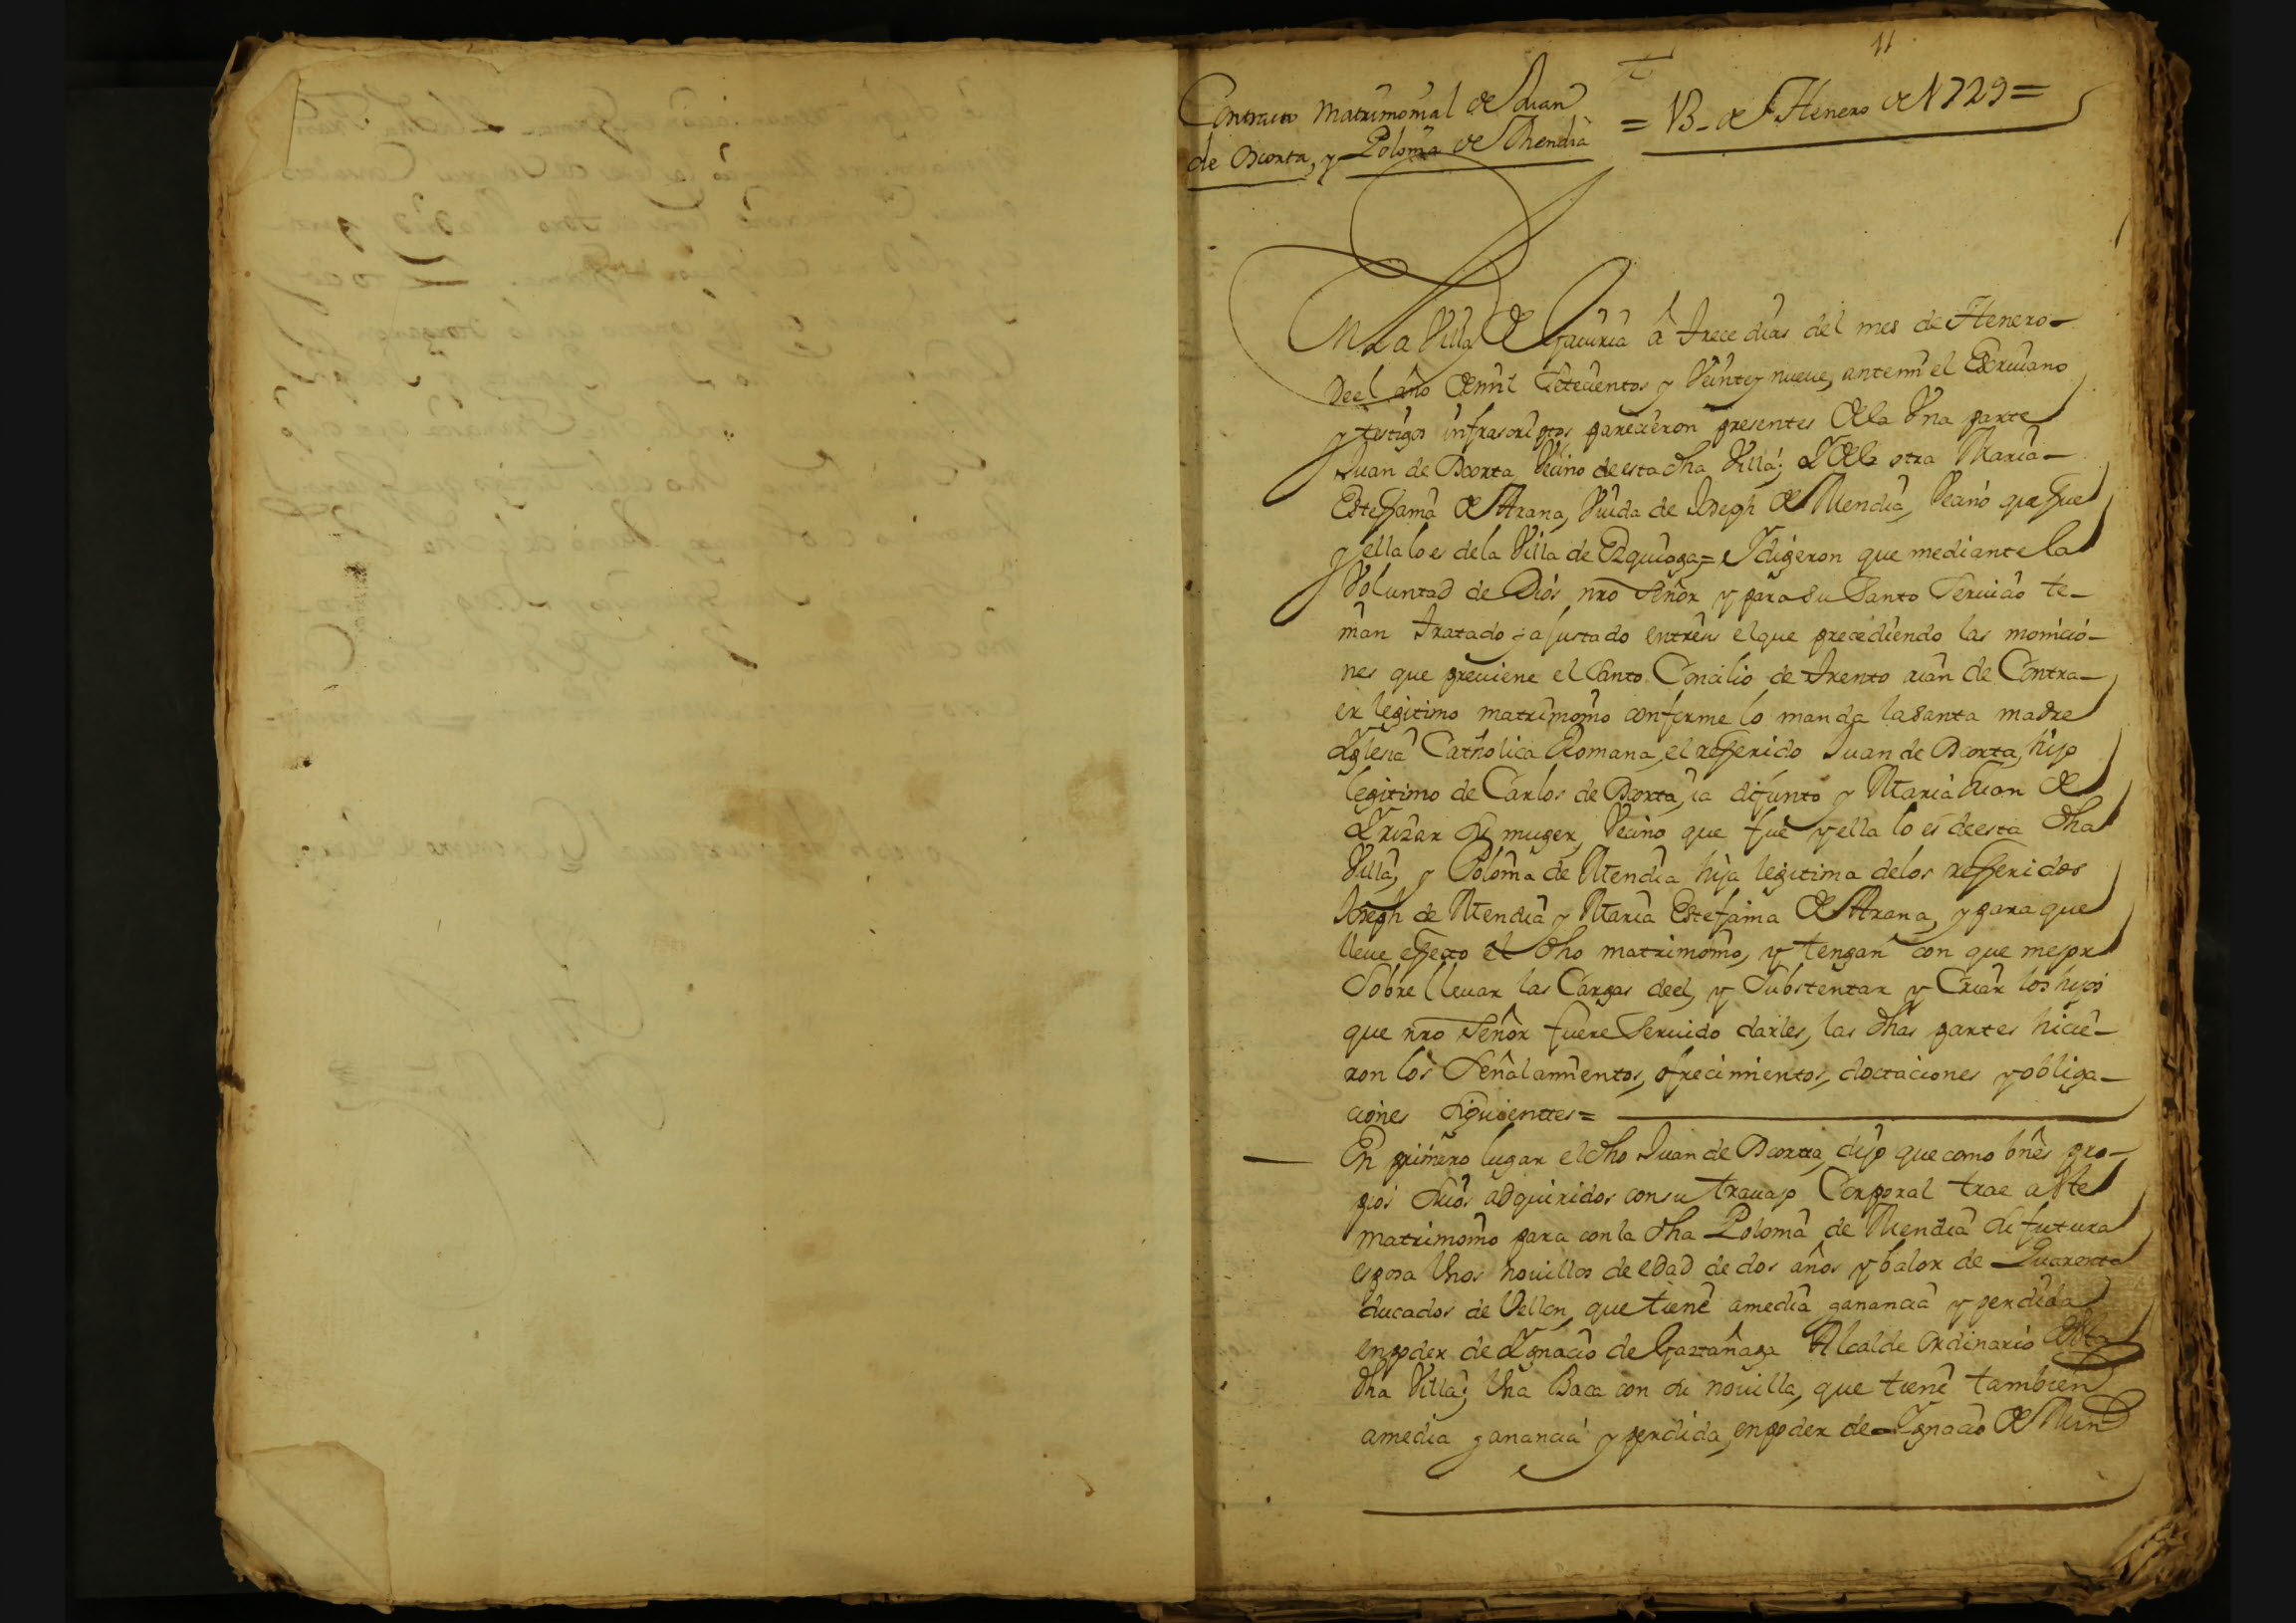 11
Contrato Matrimonial de Juan
de Dorta, y Polonia de Mendia = 13 - de Henero de 1729 =
En la Villa de Gaviria â trece dias del mes de Henero
de el año de mil setecientos y veinte y nueve, ante mi el Escrivano
y testigos infrascriptos parecieron presentes de la Vna parte
Juan de Dorta Vecino de esta dha Villa; Y de la otra Maria
Estefania de Arana, Viuda de Joseph de Mendia, Vecino que fue
y ella lo es de la Villa de Ezquioga = Y digeron que mediante la
Voluntad de Dios nro Señor y para su Santo Servicio te-
nian tratado y ajustado entre sus el que precediendo las monicio-
nes que previene el Santo Concilio de Trento aian de Contra-
er legitimo matrimonio conforme lo manda la Santa madre
Yglesia Catholica Romana, el refferido Juan de Dorta, hijo
legitimo de Carlos de Dorta, ia difunto y Maria Juan de
Yrizar su muger, Vecino que fue y ella lo es de esta dha
Villa, y Polonia de Mendia hija legitima de los refferidos
Joseph de Mendia y Maria Estefania de Arana, y para que
lleue effecto el dho matrimonio, y tengan con que mejor
Sobre lleuar las Cargas de el, y Substentar y Criar los hijos
que nro Señor fuere Seruido darles, las dhas partes hicie-
ron los Señalamientos, ofrecimientos, dottaciones y obliga-
ciones siguienttes =
En primero lugar el dho Juan de Dorta, dijo que como bnes pro-
pios suios adquiridos con su trauajo Corporal trae a este
matrimonio para con la dha Polonia de Mendia su futura
esposa Vnos nouillos de edad de dos años y balor de Quarenta
ducados de Vellon, que tiene a media ganancia y perdida
en poder de Ygnacio de Gaztañaga Alcalde ordinario de esta
dha Villa; Vna Baca con su nouilla, que tiene tambien
a media ganancia y perdida, en poder de Ygnacio de Mun